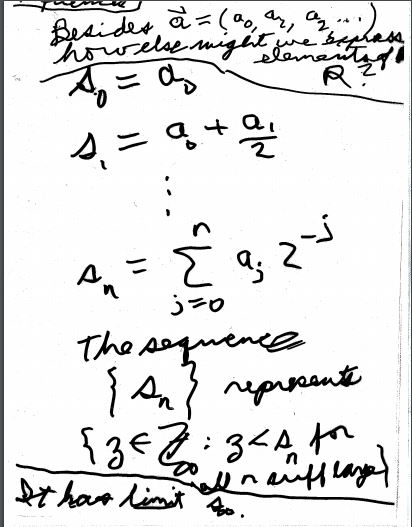 Besides a⃗ = (a₀, a₁, a₂ ...)
how else might we express
elements of
R?
s₀ = a₀
s₁ = a₀ + a₁/2
⋮
sₙ = Σⁿⱼ₌₀ aⱼ 2⁻ʲ
The sequence
{sₙ} represents
{z ∈ Z∞ : z < sₙ for
all n suff large}
It has limit s∞.